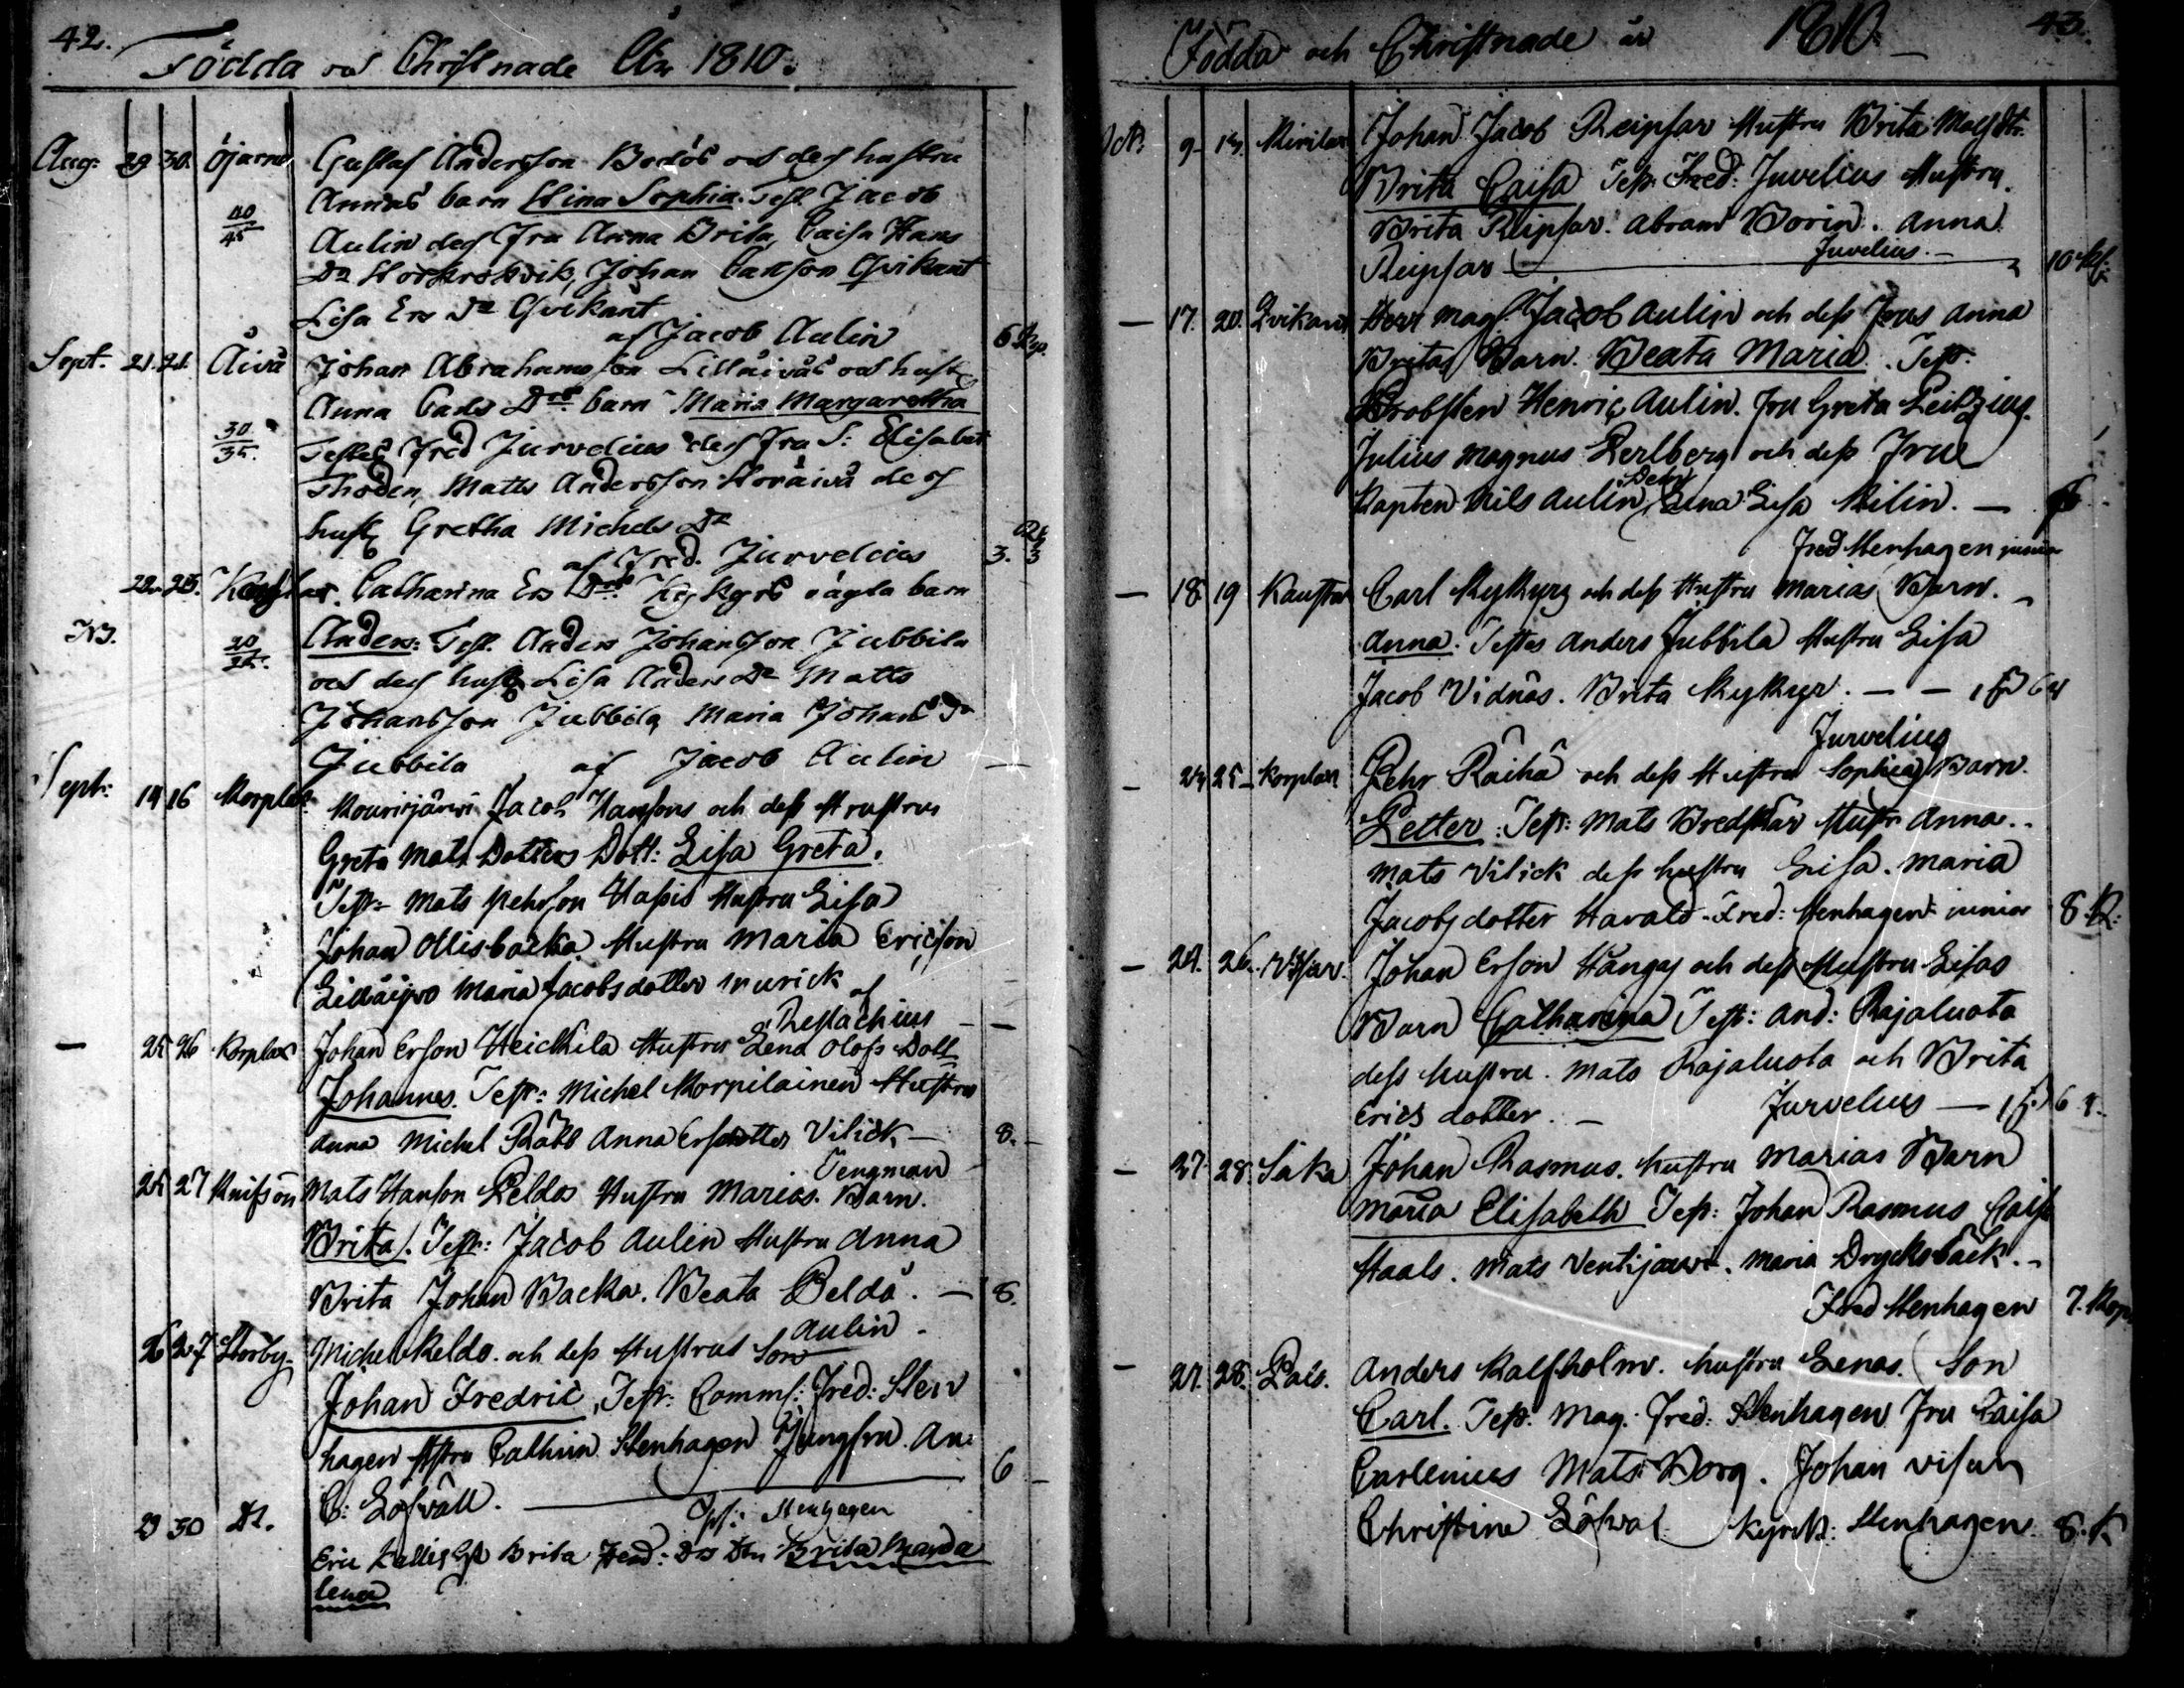 42.
Födda och Christnade År 1810.
Aug: 29 30. Öjarne, Gustaf Andersson Bodös och des hustru
Annas barn Stina Sophia. Test Jacob
40/45
Aulin des Fru Anna Brita, Caisa Hans
Dr Storkrokvik, Johan Carlson Qvikant
Lisa Ers Dr Qvikant
af Jacob Aulin 6
Sept. 21. 21. Åivå Johan Abrahamsson Lillåivås och hust
Anna Carls Drs barn Maria Margaretha
30/35.
Testes Fred Jurvelius des Fru S: Elisabet
Thoden, Matts Andersson Storåivå des
hust Gretha Michels Dr
af Fred. Jurvelius 3. 3
22. 23. Catharina Ers Drs Kykyrs oägta barn
NB. 20/25.
Anders: Test. Anders Johansson Jubbila
och des hust Lisa Anders Dr Matts
Johansson Jubbila, Maria Johans Dr
Jubbila af Jacob Aulin —
Sept: 14 16 Korplax Jacob Hansons och dess Hustrus
Greta Mats Dotters Dott: Lisa Greta.
Test: Mats Pehrson Hustru Lisa
Johan Ollisbacka Hustru Maria Ericson
Maria Jacobsdotter af
Restachius —
— 25 26 Korplax Johan Erson Heickila Hustru Lena Olofs Dott
Johannes. Test: Michel Korpilainen Hustru
Anna Michel Räbb Anna Ersdotter Vilick — 8.
Tengman
25 27 Knifsön Mats Hanson Peldos Hustru Marias. Barn.
Brita. Test: Jacob Aulin Hustru Anna
Brita Johan Backa. Beata Peldå. — 8.
Aulin
26 27 Storby. Michel Peldo och dess Hustrus Son
Johan Fredric, Test: Comms: Fred: Sten
hagen Hustru Cathrin Stenhagen Jungfru An:
C: Löfvall. — 6
Stenhagen
29 30 Dt. Eric Brita Fred: Brita Magda
lena
43.
Födda och Christnade år 1810.
Oct. 9. 13. Johan Jacob Reipsar Hustru Brita Mats Dtr.
Brita Caisa Test. Fred: Juvelius Hustru
Brita Reipsar. Abram Borin. Anna
Reipsar — Juvelius. — 10
— 17. 20. Qvikant Herr Mag. Jacob Aulin och dess Frus Anna
Britas Barn. Beata Maria. Test:
Probsten Henric Aulin. Fru Greta Leitzius.
Julius Magnus Perlberg och dess Fru
Kapten Nils Aulin, Lena Lisa Milin. —
Fred Stenhagen junior
— 18 19 Kaustar Carl Kykyrs och dess Hustru Marias Barn.
Anna. Testes Anders Jubbila Hustru Lisa
Jacob Vidnäs. Brita Kykyr. — —
Jurvelius
— 24 25 Korplax Pehr Räihä och dess Hustru Sophias Barn.
Petter. Test: Mats Bredskär Hustr Anna.
Mats Vilick dess hustru Lisa. Maria
Jacobsdotter Harald. Fred: Stenhagen junior 8. K:
— 24. 26. Johan Erson Kangas och dess Hustru Lisas
Barn Catharina Test: And: Rajaluota
dess hustru. Mats Rajaluota och Brita
Erics dotter. — Jurvelius —
— 27. 28. Johan Rasmus. hustru Marias Barn
Maria Elisabeth Test: Johan Rasmus Caisa
Staals. Mats Ventjärvi. Maria Drycksbäck.
Fred Stenhagen 7. Kop.
— 27. 28. Anders Kalfholm. hustru Lenas. Son
Carl. Test: Mag: Fred: Stenhagen Fru Caisa
Carlenius Mats Borg. Johan
Christine Löfval Kyrk: Stenhagen. 8. K